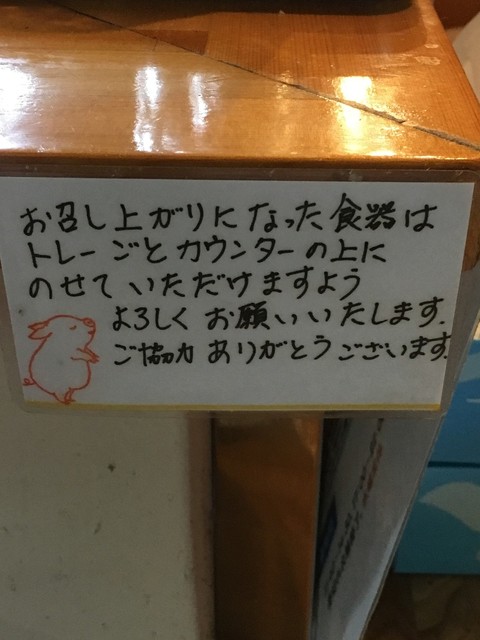 お召し上がりになった食器は
トレーごとカウンターの上に
のせていただけますよう
よろしくお願いいたします.
ご協力ありがとうございます.